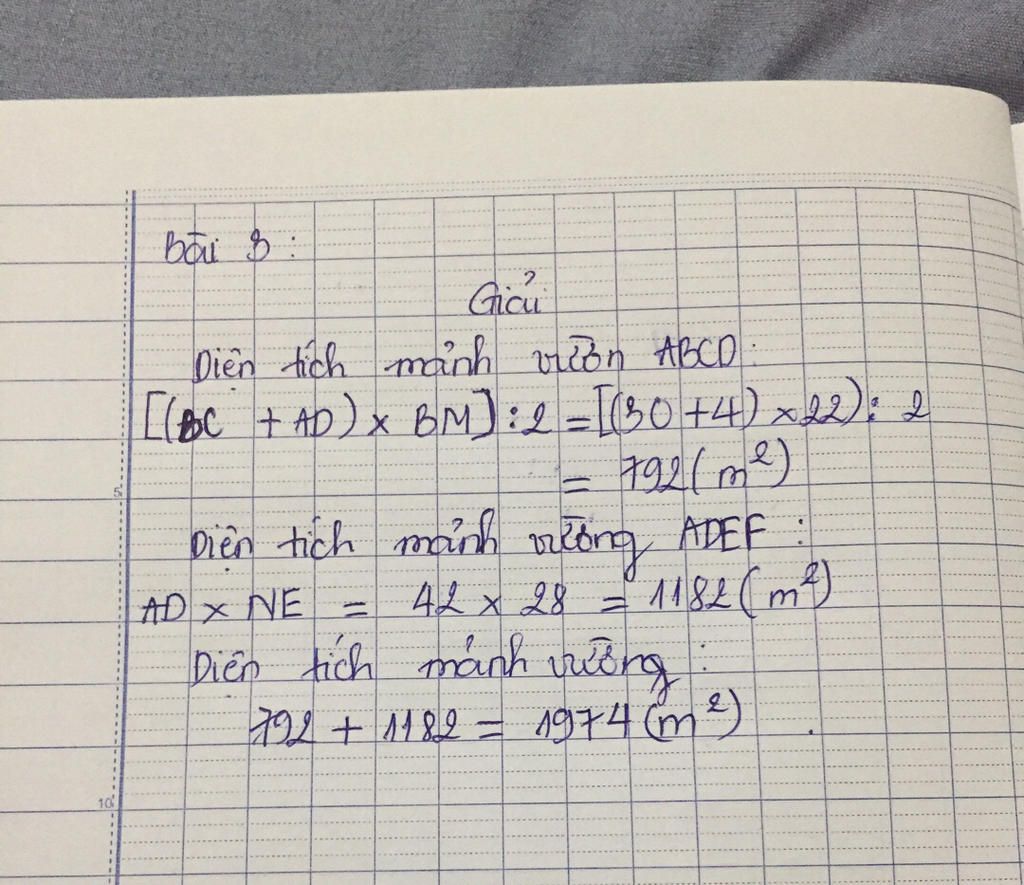 Bài 3:
Giải
Diện tích mảnh vườn ABCD:
[(BC + AD) x BM] : 2 = [(30 + 4) x 22) : 2
= 792 (m²)
5
Diện tích mảnh vường ADEF :
AD x NE = 42 x 28 = 1182 (m²)
Diện tích mảnh vường :
792 + 1182 = 1974 (m²) .
10